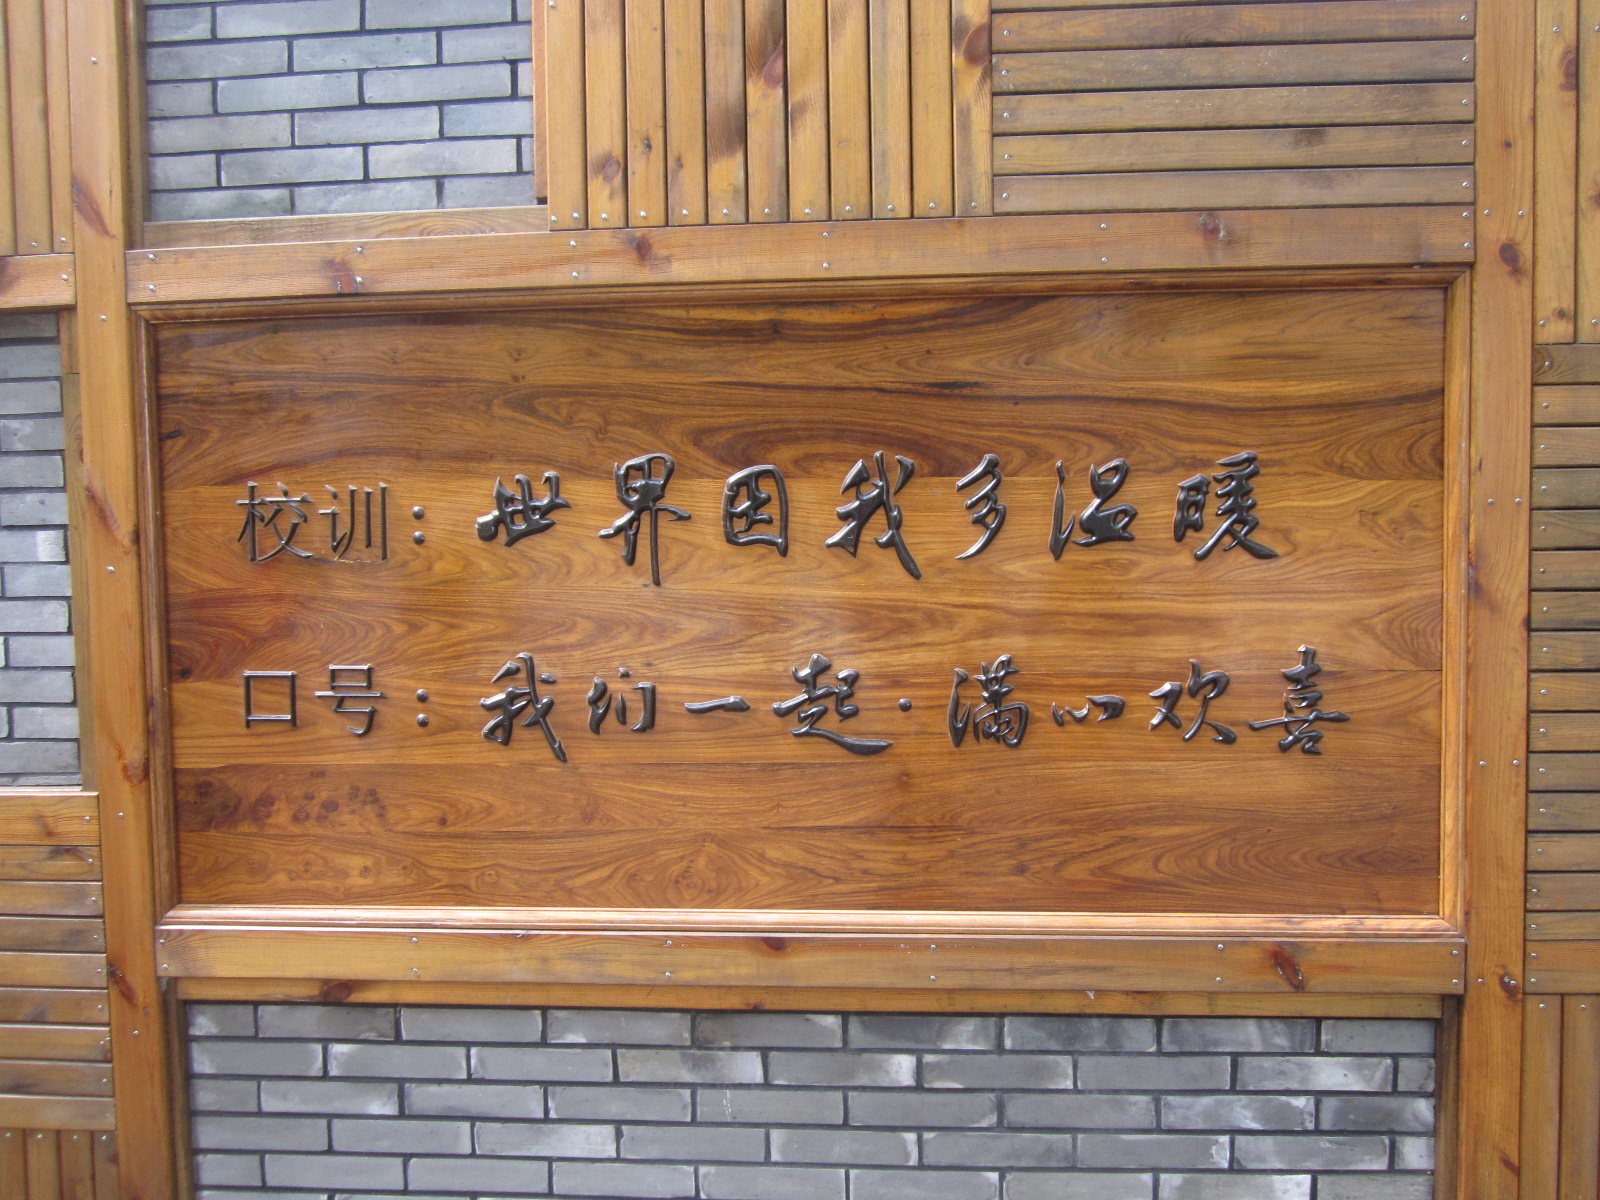 校训：世界因我多温暖
口号：我们一起·满心欢喜